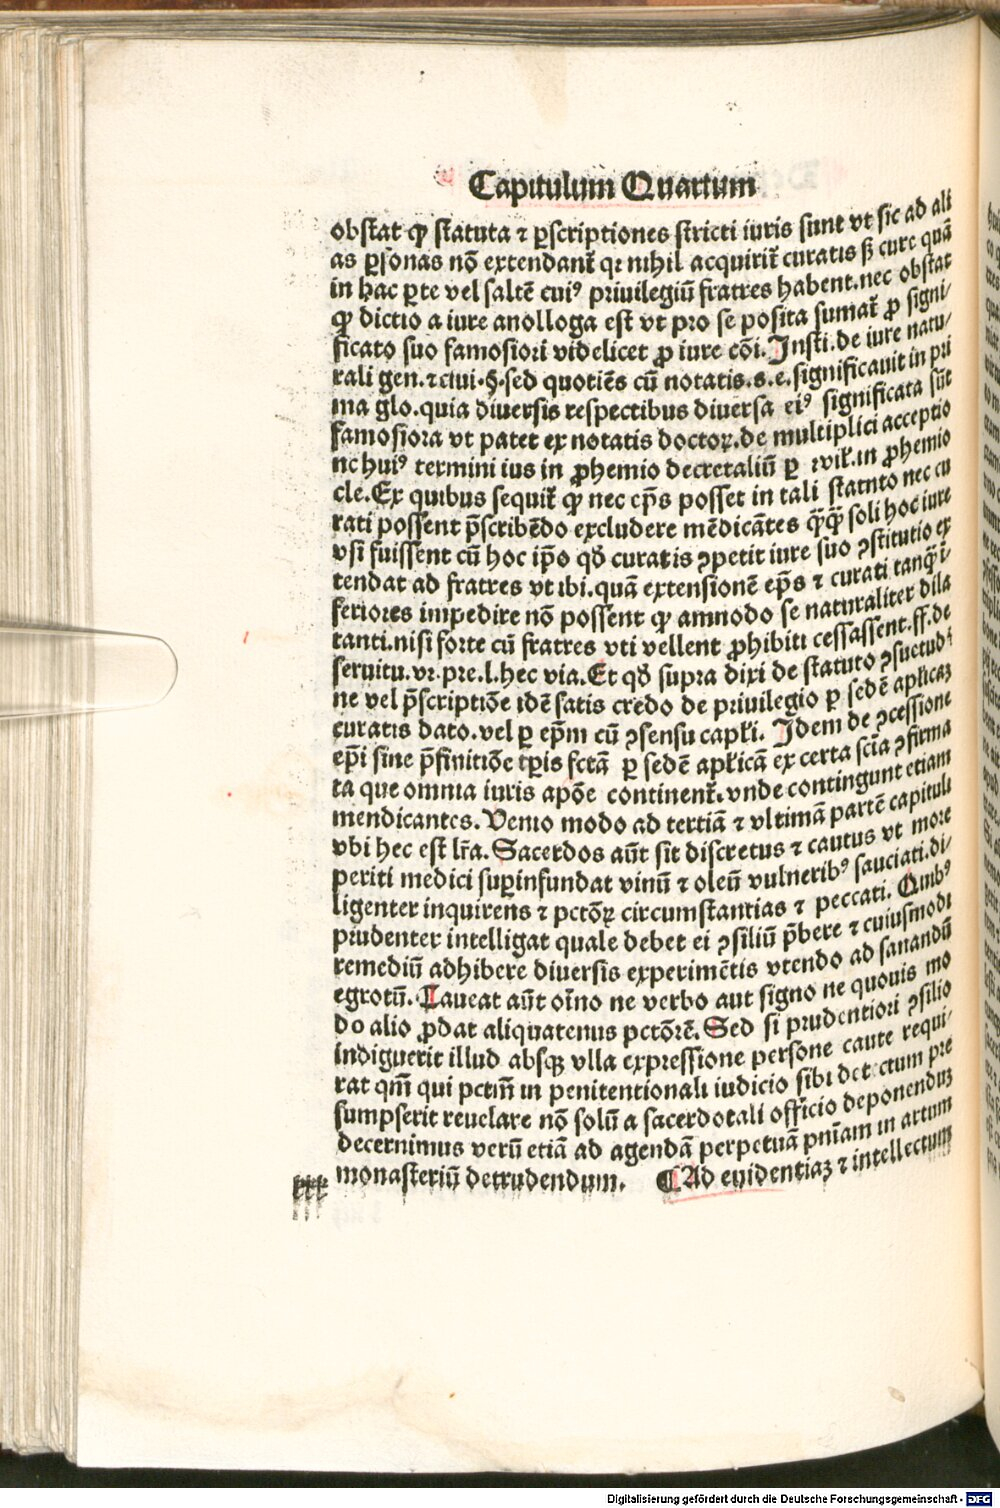 Capitulum Quartum
obstat ꝙ statuta ⁊ p̄scriptiones stricti iuris sunt vt sic ad ali
as ꝑsonas nō extendant̃ qꝛ nihil acquirit̃ curatis sʒ cure quā
in hac ꝑte vel saltē cuiꝰ priuilegiū fratres habent.nec obstat
ꝙ dictio a iure anolloga est vt pro se posita sumat̃ ꝓ signi/
ficato suo famosiori videlicet ꝓ iure cōi. Insti.de iure natu/
rali gen.⁊ ciui.§.sed quotiēs cū notatis.s.e.significauit in pri
ma glo.quia diuersis respectibus diuersa eiꝰ significata sūt
famosiora vt patet ex notatis doctoꝝ.de multiplici acceptio
ne huiꝰ termini ius in ꝓhemio decretaliū ꝑ ⁊ vik̃.in ꝓhemio
cle.Ex quibus sequit̃ ꝙ nec ep̄s posset in tali statuto nec cu
rati possent p̄scribēdo excludere mēdicātes q̄ꝙ̄ soli hoc iure
vsi fuissent cū hoc ip̄o qđ curatis ꝯpetit iure suo ꝯstitutio ex
tendat ad fratres vt ibi.quā extensionē ep̄s ⁊ curati tanꝙ̄ ī/
feriores impedire nō possent ꝙ amnodo se naturaliter dila
tanti.nisi forte cū fratres vti vellent ꝓhibiti cessassent.ff.de
seruitu.vr.pre.l.hec via.Et qđ supra dixi de statuto ꝯsuetudi
ne vel p̄scriptiōe idē satis credo de priuilegio ꝑ sedē apl̄icaʒ
curatis dato.vel ꝑ ep̄m cū ꝯsensu capl̄i. Idem de ꝯcessione
ep̄i sine p̄finitiōe tꝑis fctā ꝑ sedē apl̄icā ex certa sciā ꝯfirma
ta que omnia iuris apōe continent̃.vnde contingunt etiam
mendicantes. Venio modo ad tertiā ⁊ vltimā partē capituli
vbi hec est lr̄a. Sacerdos aūt sit discretus ⁊ cautus vt more
periti medici suꝑinfundat vinū ⁊ oleū vulneribꝰ sauciati.di/
ligenter inquirens ⁊ pctōꝝ circumstantias ⁊ peccati. Quibꝰ
prudenter intelligat quale debet ei ꝯsiliū p̄bere ⁊ cuiusmodi
remediū adhibere diuersis experimētis vtendo ad sanandū
egrotū. Caueat aūt oīno ne verbo aut signo ne quouis mo
do alio ꝓdat aliquatenus pctōrē. Sed si prudentiori ꝯsilio
indiguerit illud absqʒ vlla expressione persone caute requi/
rat qm̄ qui pctm̄ in penitentionali iudicio sibi detectum pre
sumpserit reuelare nō solū a sacerdotali officio deponenduʒ
decernimus verū etiā ad agendā perpetuā pniam in artum
monasteriū detrudendum. ¶ Ad euidentiaʒ ⁊ intellectum
Digitalisierung gefördert durch die Deutsche Forschungsgemeinschaft - DFG